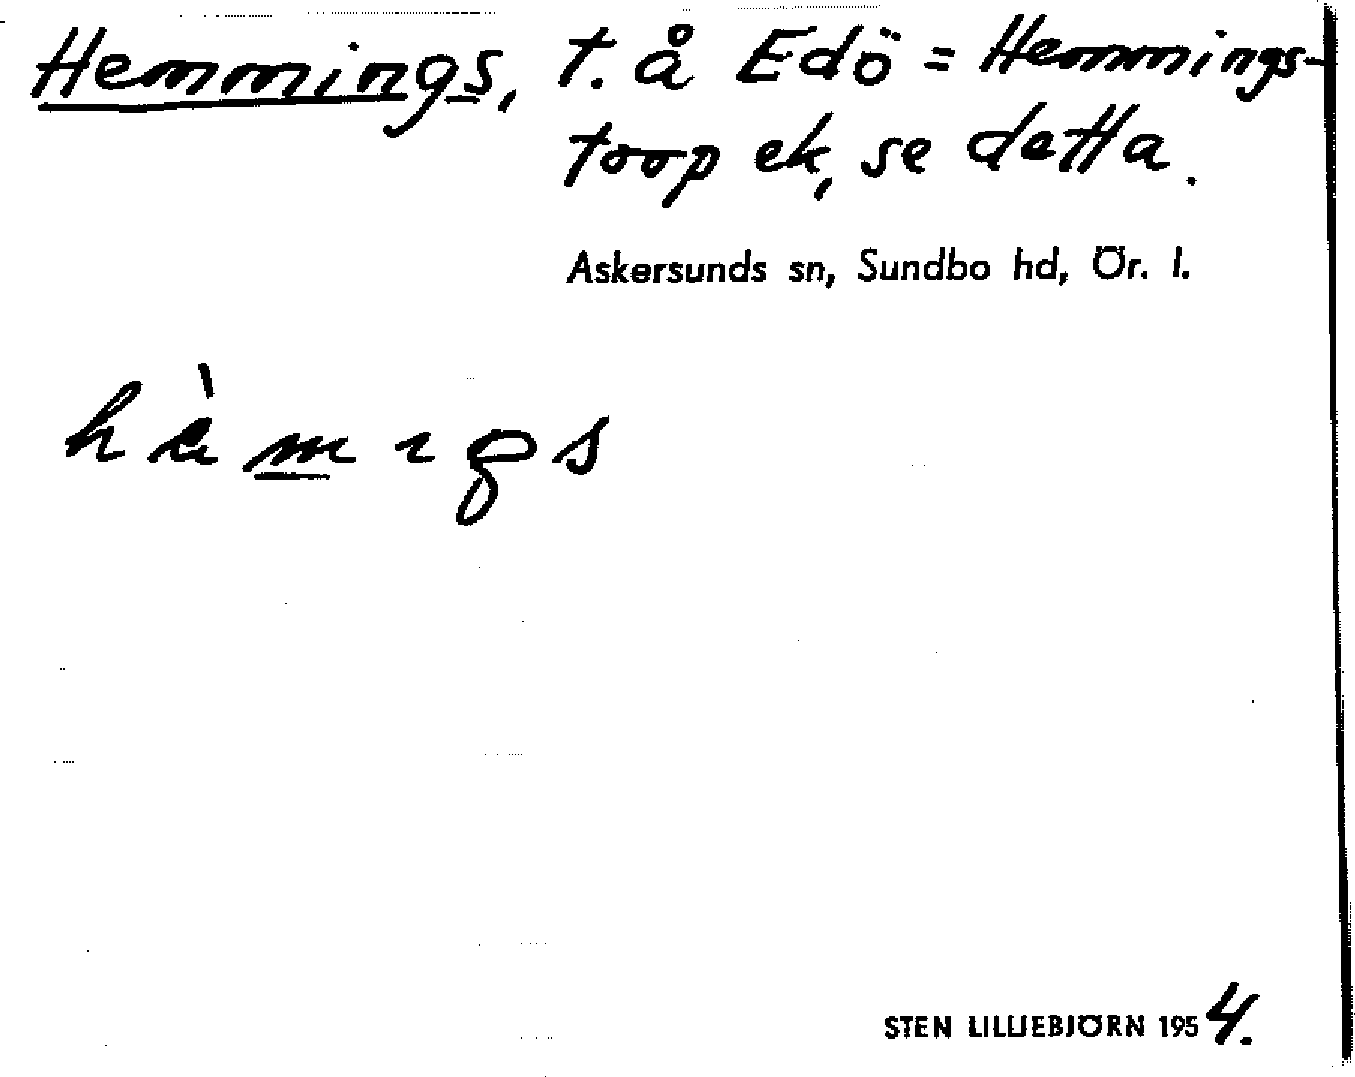 Hemmings, t. å Edö = Hemmings-
torp ek, se detta.
Askersunds sn, Sundbo hd, Ör. l.
STEN LILLIEBJÖRN 1954.